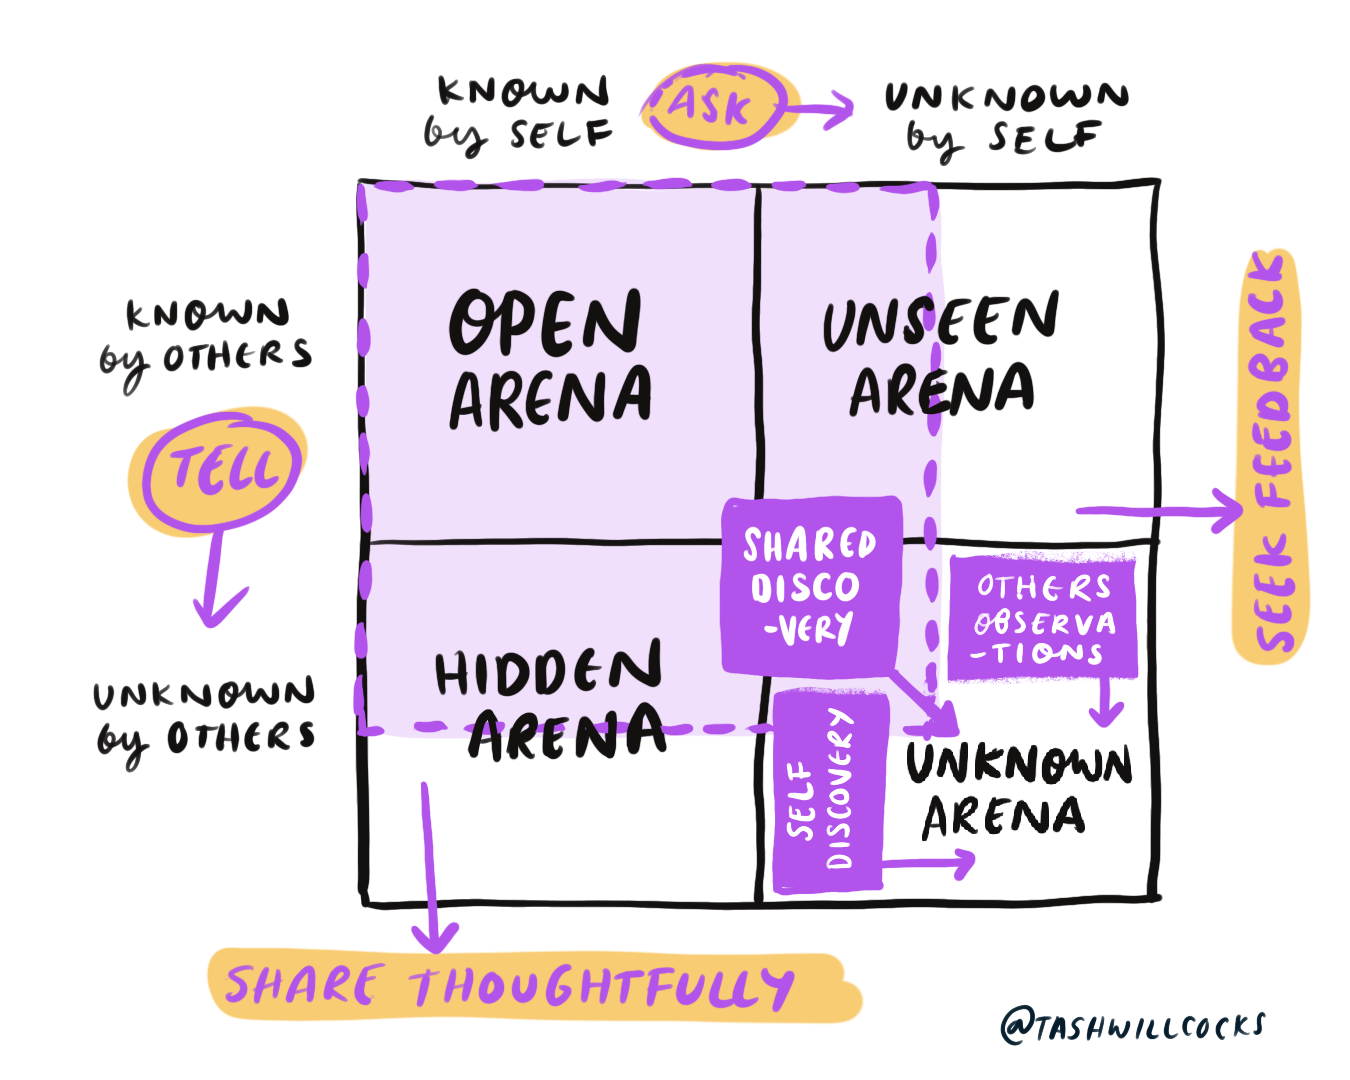 KNOWN
by SELF
ASK
UNKNOWN
by SELF
KNOWN
by OTHERS
TELL
UNKNOWN
by OTHERS
OPEN
ARENA
UNSEEN
ARENA
SHARED
DISCO
-VERY
OTHERS
OBSERVA
-TIONS
HIDDEN
ARENA
SELF
DISCOVERY
UNKNOWN
ARENA
SEEK FEEDBACK
SHARE THOUGHTFULLY
@TASHWILLCOCKS